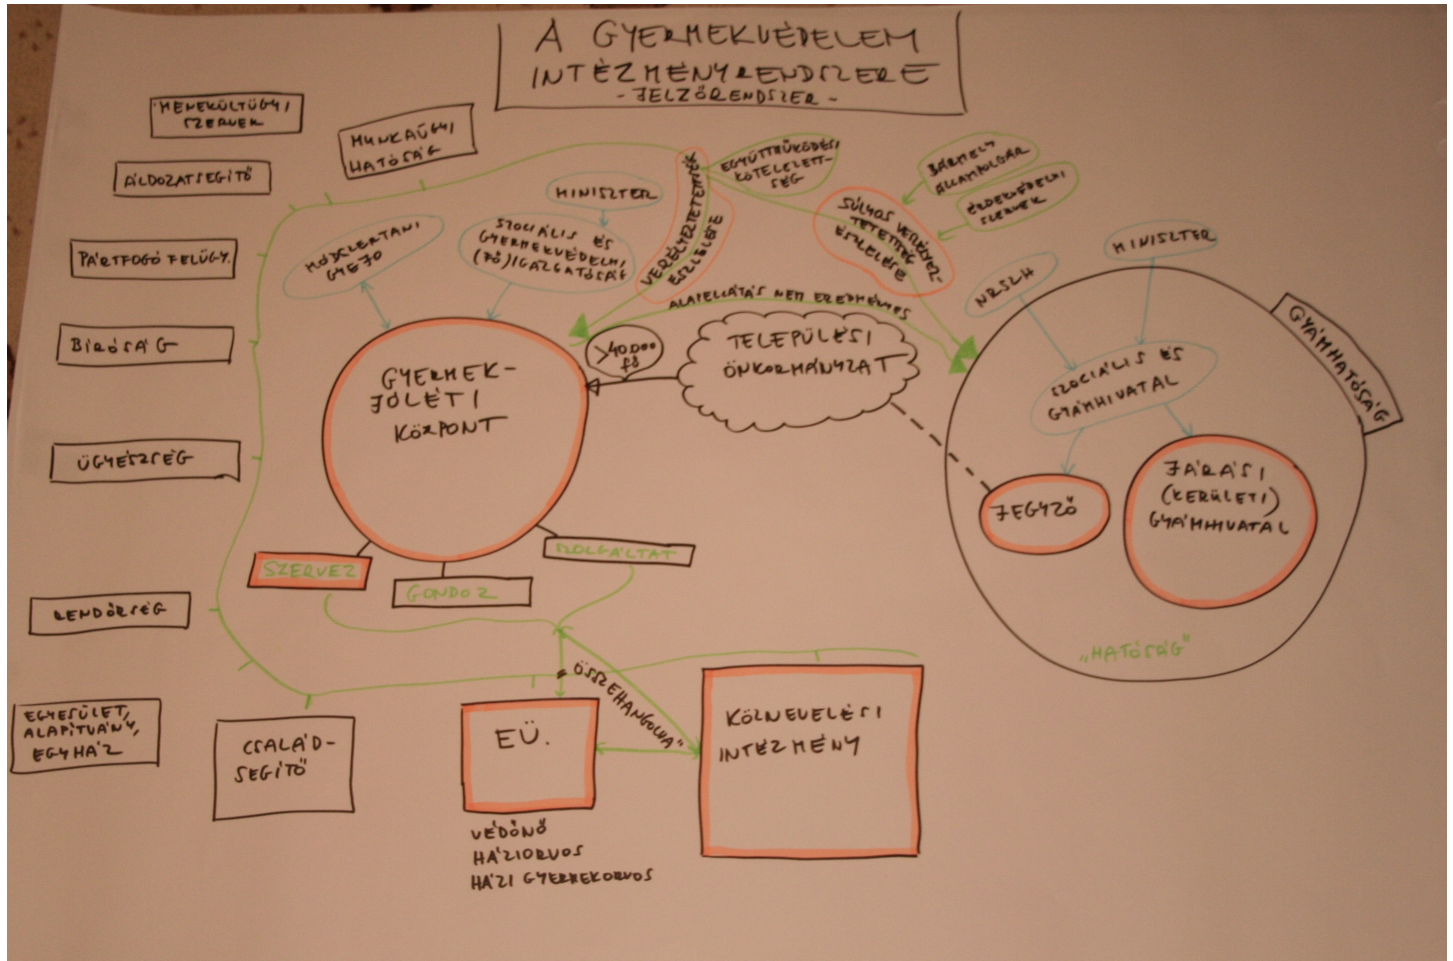 A GYERMEKVÉDELEM
INTÉZMÉNYRENDSZERE
- JELZŐRENDSZER -
MENEKÜLTÜGYI
SZERVEK
MUNKAÜGYI
HATÓSÁG
ÁLDOZATSEGÍTŐ
PÁRTFOGÓ FELÜGY.
BÍRÓSÁG
ÜGYÉSZSÉG
RENDŐRSÉG
EGYESÜLET,
ALAPÍTVÁNY,
EGYHÁZ
CSALÁD-
SEGÍTŐ
MÓDSZERTANI
GYEJO
MINISZTER
SZOCIÁLIS ÉS
GYERMEKVÉDELMI
(FŐ)IGAZGATÓSÁG
VESZÉLYEZTETETTSÉG
ÉSZLELÉSE
EGYÜTTMŰKÖDÉSI
KÖTELEZETT-
SÉG
SÚLYOS VESZÉLYEZ-
TETETTSÉG
ÉSZLELÉSE
BÁRMELY
ÁLLAMPOLGÁR
ÉRDEKVÉDELMI
SZERVEK
ALAPELLÁTÁS NEM EREDMÉNYES
GYERMEK-
JÓLÉTI
KÖZPONT
>40.000
FŐ
TELEPÜLÉSI
ÖNKORMÁNYZAT
SZERVEZ
GONDOZ
SZOLGÁLTAT
"ÖSSZEHANGOLVA"
EÜ.
VÉDŐNŐ
HÁZIORVOS
HÁZI GYERMEKORVOS
KÖZNEVELÉSI
INTÉZMÉNY
NRSZH
MINISZTER
GYÁMHATÓSÁG
SZOCIÁLIS ÉS
GYÁMHIVATAL
JEGYZŐ
JÁRÁSI
(KERÜLETI)
GYÁMHIVATAL
„HATÓSÁG"